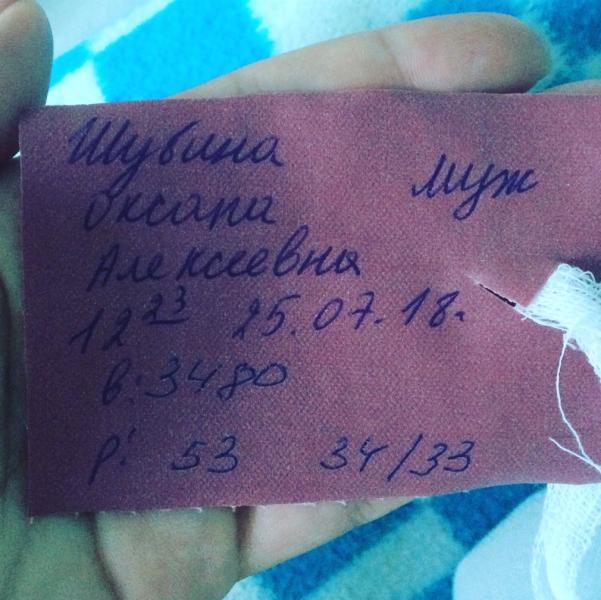 Шубина
Оксана муж
Алексеевна
12 23 25.07.18г.
в: 3480
р: 53 34/33